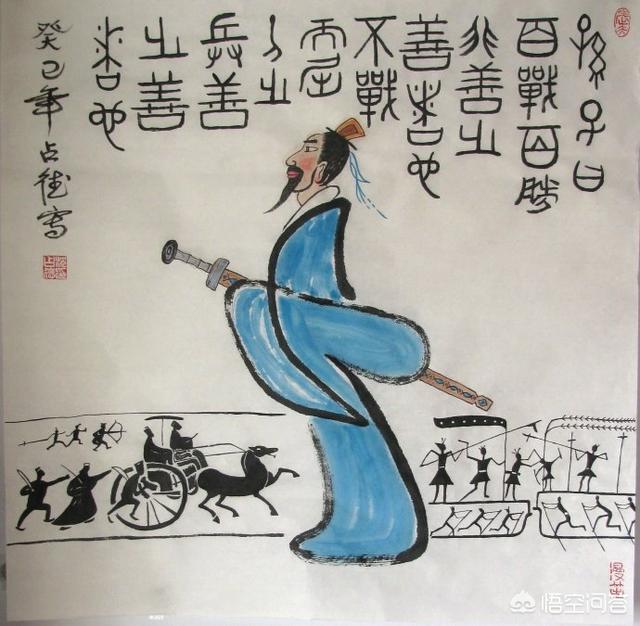 孫子曰
百戰百勝
非善之
善者也
不戰
而屈
人之
兵善
之善
者也
癸巳年占德写
悟空问答